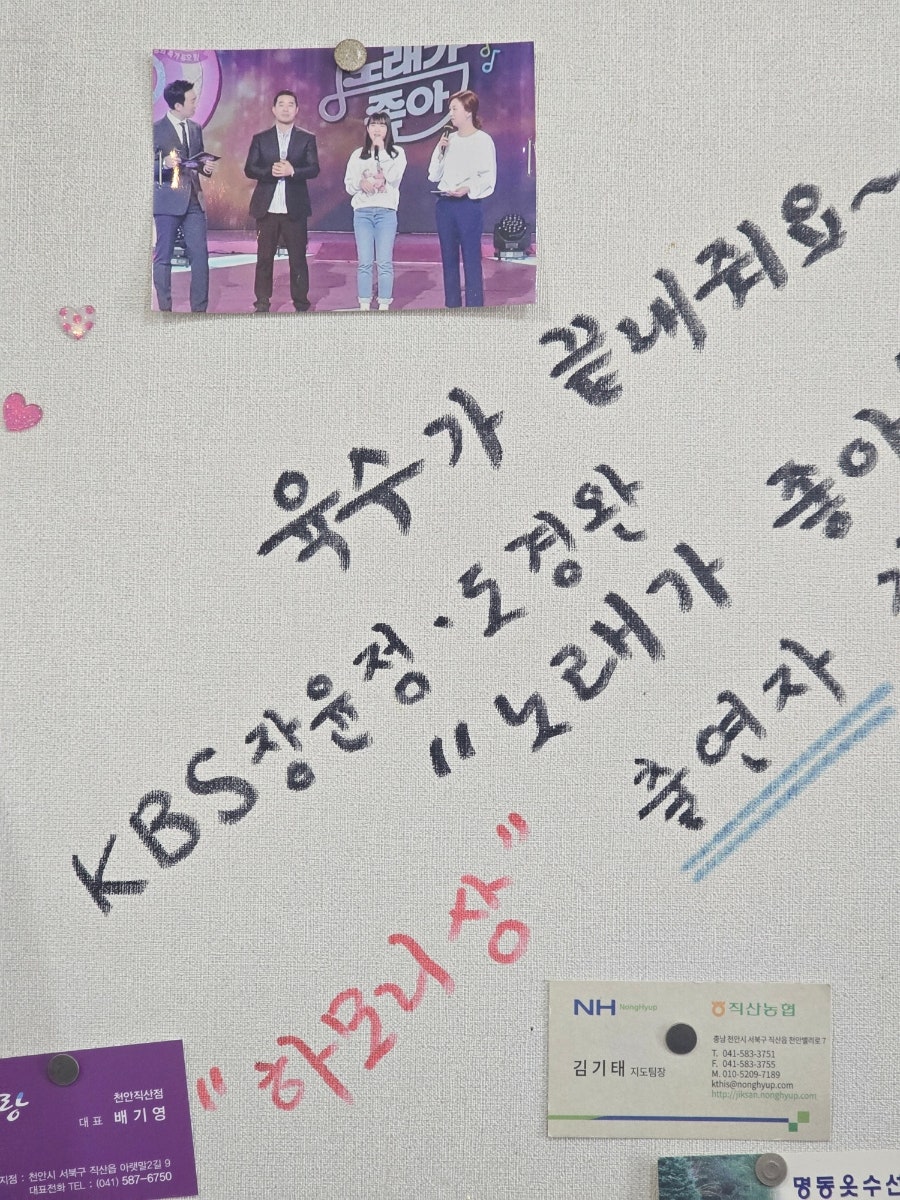 노래가
좋아
육수가 끝내줘요~
KBS장윤정·도경완
"노래가 좋아
출연자
"하모리상"
NH NongHyup
직산농협
충남 천안시 서북구 직산읍 천안밸리로 7
김기태 지도팀장
T. 041-583-3751
F. 041-583-3755
M. 010-5209-7189
kthis@nonghyup.com
http://jiksan.nonghyup.com
랑
천안직산점
대표 배기영
지점 : 천안시 서북구 직산읍 아랫말2길 9
대표전화 TEL : (041) 587-6750
명동옷수선